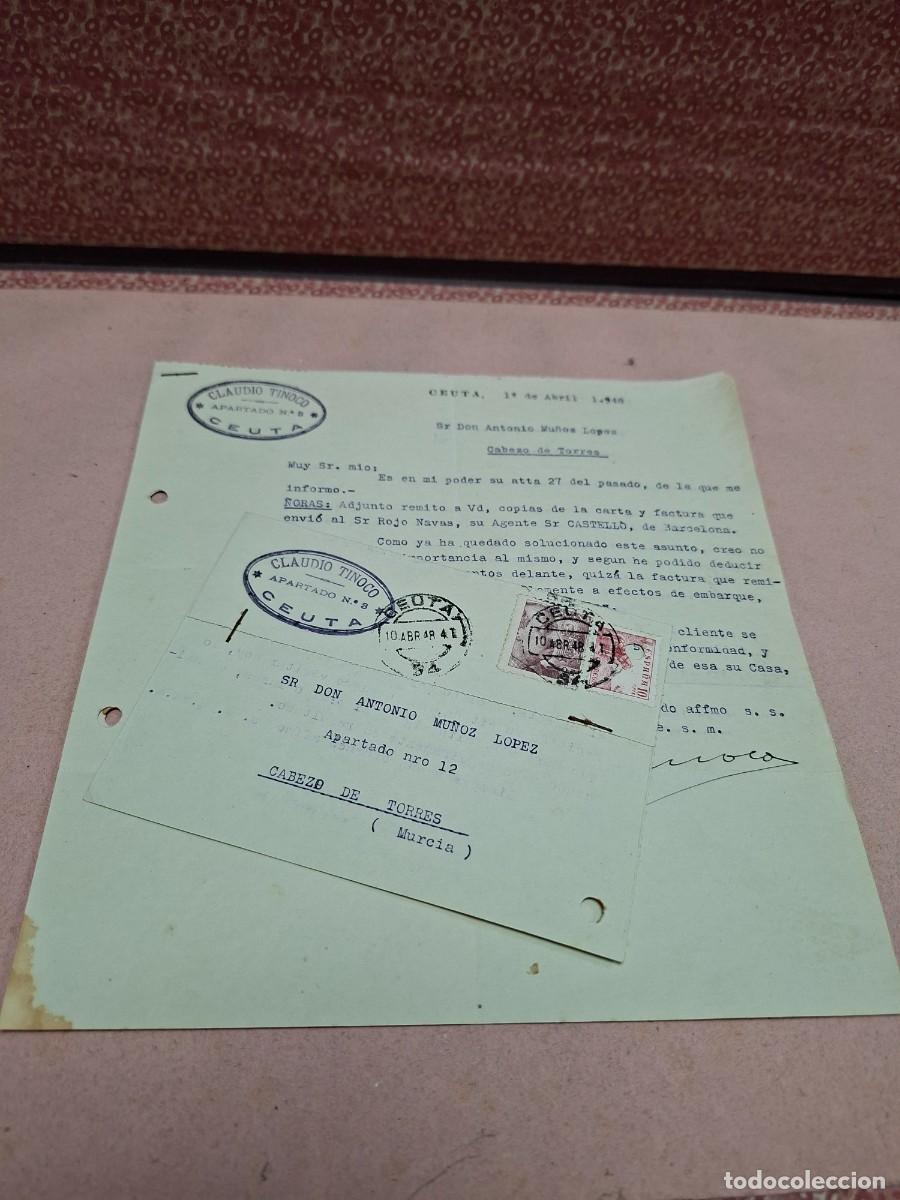 CLAUDIO TINOCO
APARTADO N.º 8
CEUTA
CEUTA, 1º de Abril 1.948
Sr Don Antonio Muños Lopez
Cabezo de Torres
Muy Sr. mio:
Es en mi poder su atta 27 del pasado, de la que me
informo.-
ÑORAS: Adjunto remito a Vd, copias de la carta y factura que
envió al Sr Rojo Navas, su Agente Sr CASTELLÓ, de Barcelona.
Como ya ha quedado solucionado este asunto, creo no
importancia al mismo, y segun he podido deducir
delante, quizá la factura que remi-
a efectos de embarque,
cliente se
conformidad, y
de esa su Casa,
affmo s. s.
e. s. m.
CLAUDIO TINOCO
APARTADO N.º 8
CEUTA
CEUTA
10 ABR 48 4.T
CEUTA
10 ABR 48 4.T
ESPAÑA 10
SR DON ANTONIO MUÑOZ LOPEZ
Apartado nro 12
CABEZO DE TORRES
( Murcia )
todocoleccion